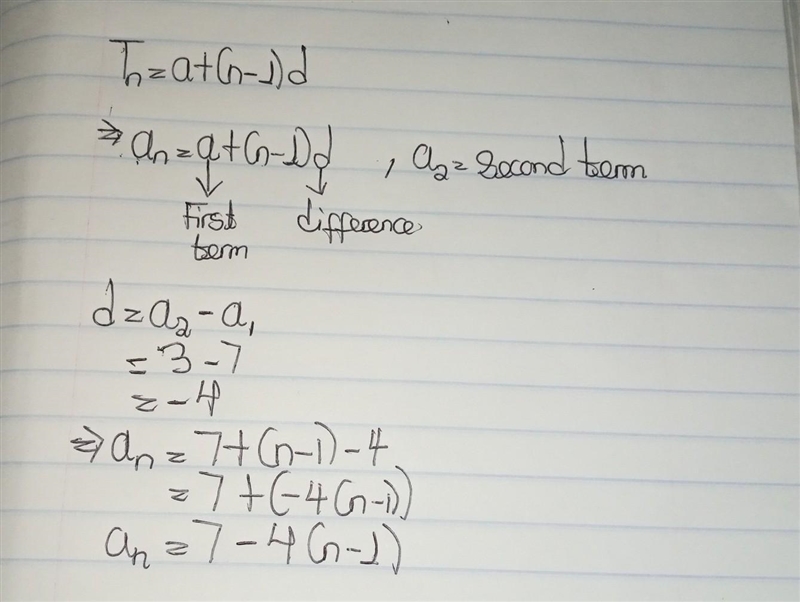 Tn=a+(n-1)d
⇒ an=a+(n-1)d , a2= second term
First difference
term
d=a2-a1
=3-7
=-4
⇒ an = 7+(n-1)-4
= 7+(-4(n-1))
an = 7-4(n-1)